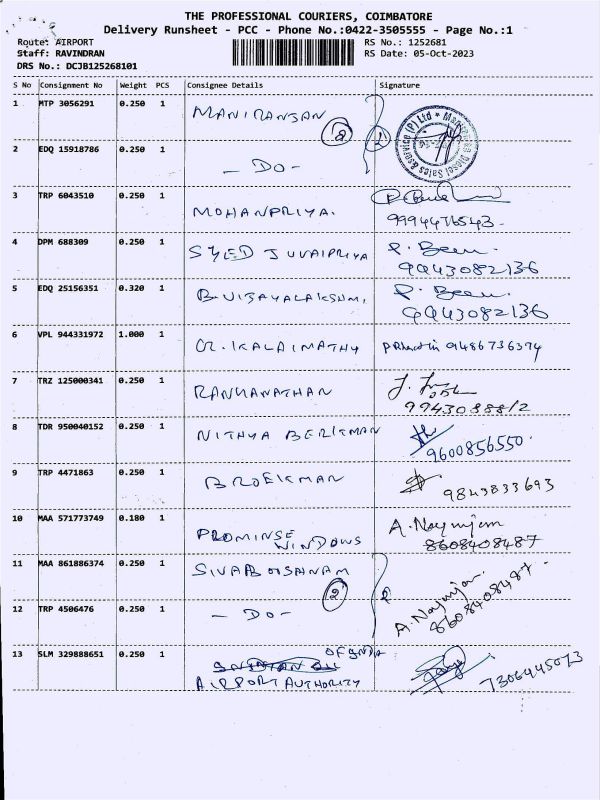 THE PROFESSIONAL COURIERS, COIMBATORE
Delivery Runsheet - PCC - Phone No.:0422-3505555 - Page No.:1
Route: AIRPORT RS No.: 1252681
Staff: RAVINDRAN RS Date: 05-Oct-2023
DRS No.: DCJB125268101
S No Consignment No Weight PCS Consignee Details Signature
1 MTP 3056291 0.250 1 MANIRANJAN 2
2 EDQ 15918786 0.250 1 - DO -
3 TRP 6043510 0.250 1 MOHANPRIYA.
9994476543
4 DPM 688309 0.250 1 SYED JUVAIPRIYA
9943082136
5 EDQ 25156351 0.320 1 B. VIJAYALAKSHMI
9943082136
6 VPL 944331972 1.000 1 KALAIMATHY 9486736374
7 TRZ 125000341 0.250 1 RANGANATHAN
9943088812
8 TDR 950040152 0.250 1 NITHYA BERKMAN
9600856550
9 TRP 4471863 0.250 1 BROEKMAN
9843833693
10 MAA 571773749 0.180 1 PROMINSE WINDOWS
8608408487
11 MAA 861886374 0.250 1 SIVABOOSHNAM 2
8608408487
12 TRP 4506476 0.250 1 - DO -
13 SLM 329888651 0.250 1 OF INDIA
AIRPORT AUTHORITY 7306445073